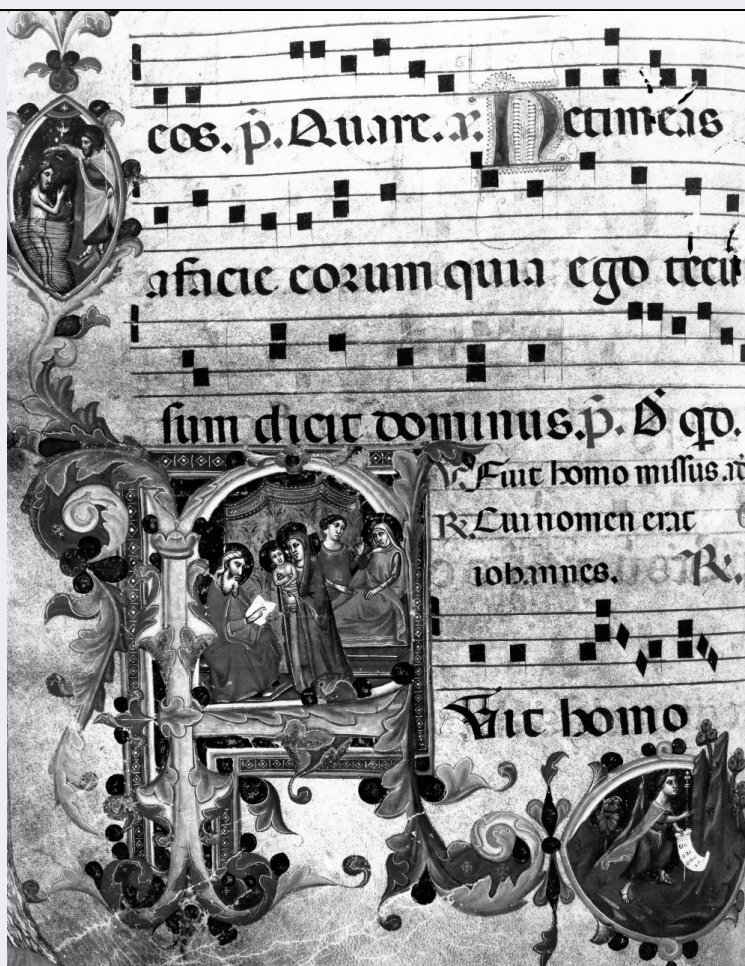 eos. p̄. Quare. a. Netimeas
afacie eorum quia ego tecū
sum dicit dominus. p̄. D̄ qd.
V. Fuit homo missus. a
R. Cui nomen erat
iohannes. R.
Fuit homo